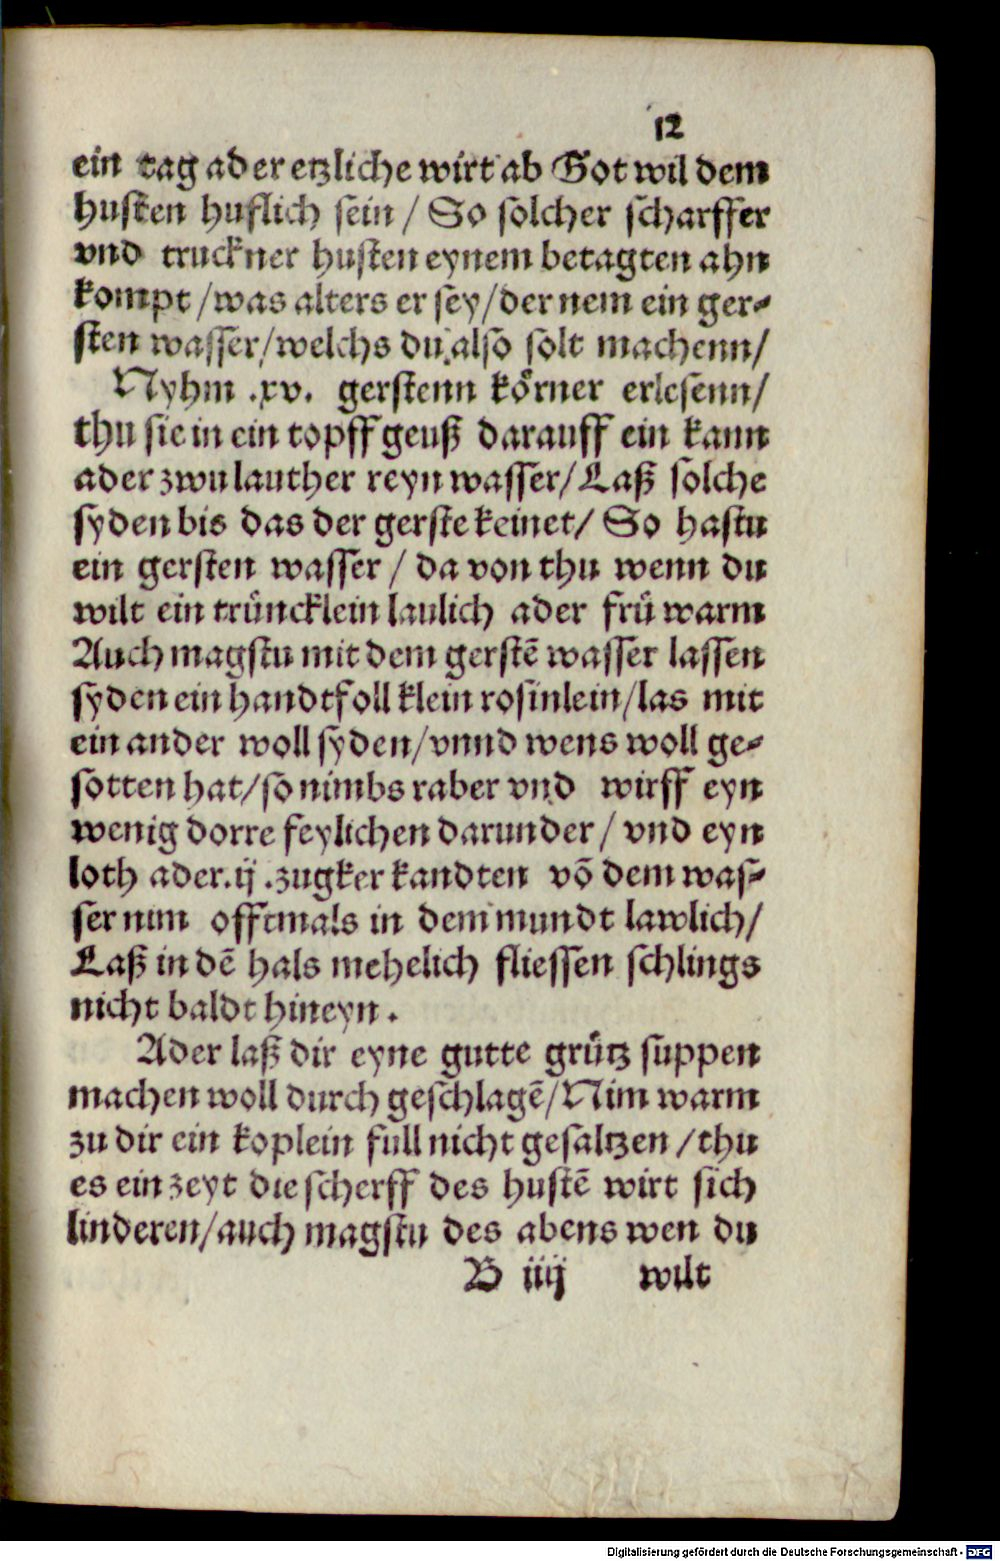 12
ein tag ader etzliche wirt ab Got wil dem
husten huflich sein / So solcher scharffer
vnd truckner husten eynem betagten ahn
kompt /was alters er sey/der nem ein ger⸗
sten wasser/welchs du also solt machenn/
Nyhm .xv. gerstenn koͤrner erlesenn/
thu sie in ein topff geuß darauff ein kann
ader zwu lauther reyn wasser/Laß solche
syden bis das der gerste keinet/ So hastu
ein gersten wasser / da von thu wenn du
wilt ein truͤncklein laulich ader fruͤ warm
Auch magstu mit dem gerstē wasser lassen
syden ein handtfoll klein rosinlein/las mit
ein ander woll syden/vnnd wens woll ge⸗
sotten hat/so nimbs raber vnd wirff eyn
wenig dorre feylichen darunder/ vnd eyn
loth ader.ij.zugker kandten vō dem was⸗
ser nim offtmals in dem mundt lawlich/
Laß in dē hals mehelich fliessen schlings
nicht baldt hineyn.
Ader laß dir eyne gutte gruͤtz suppen
machen woll durch geschlagē/Nim warm
zu dir ein koplein full nicht gesaltzen /thu
es ein zeyt die scherff des hustē wirt sich
linderen/auch magstu des abens wen du
B iiij wilt
Digitalisierung gefördert durch die Deutsche Forschungsgemeinschaft - DFG